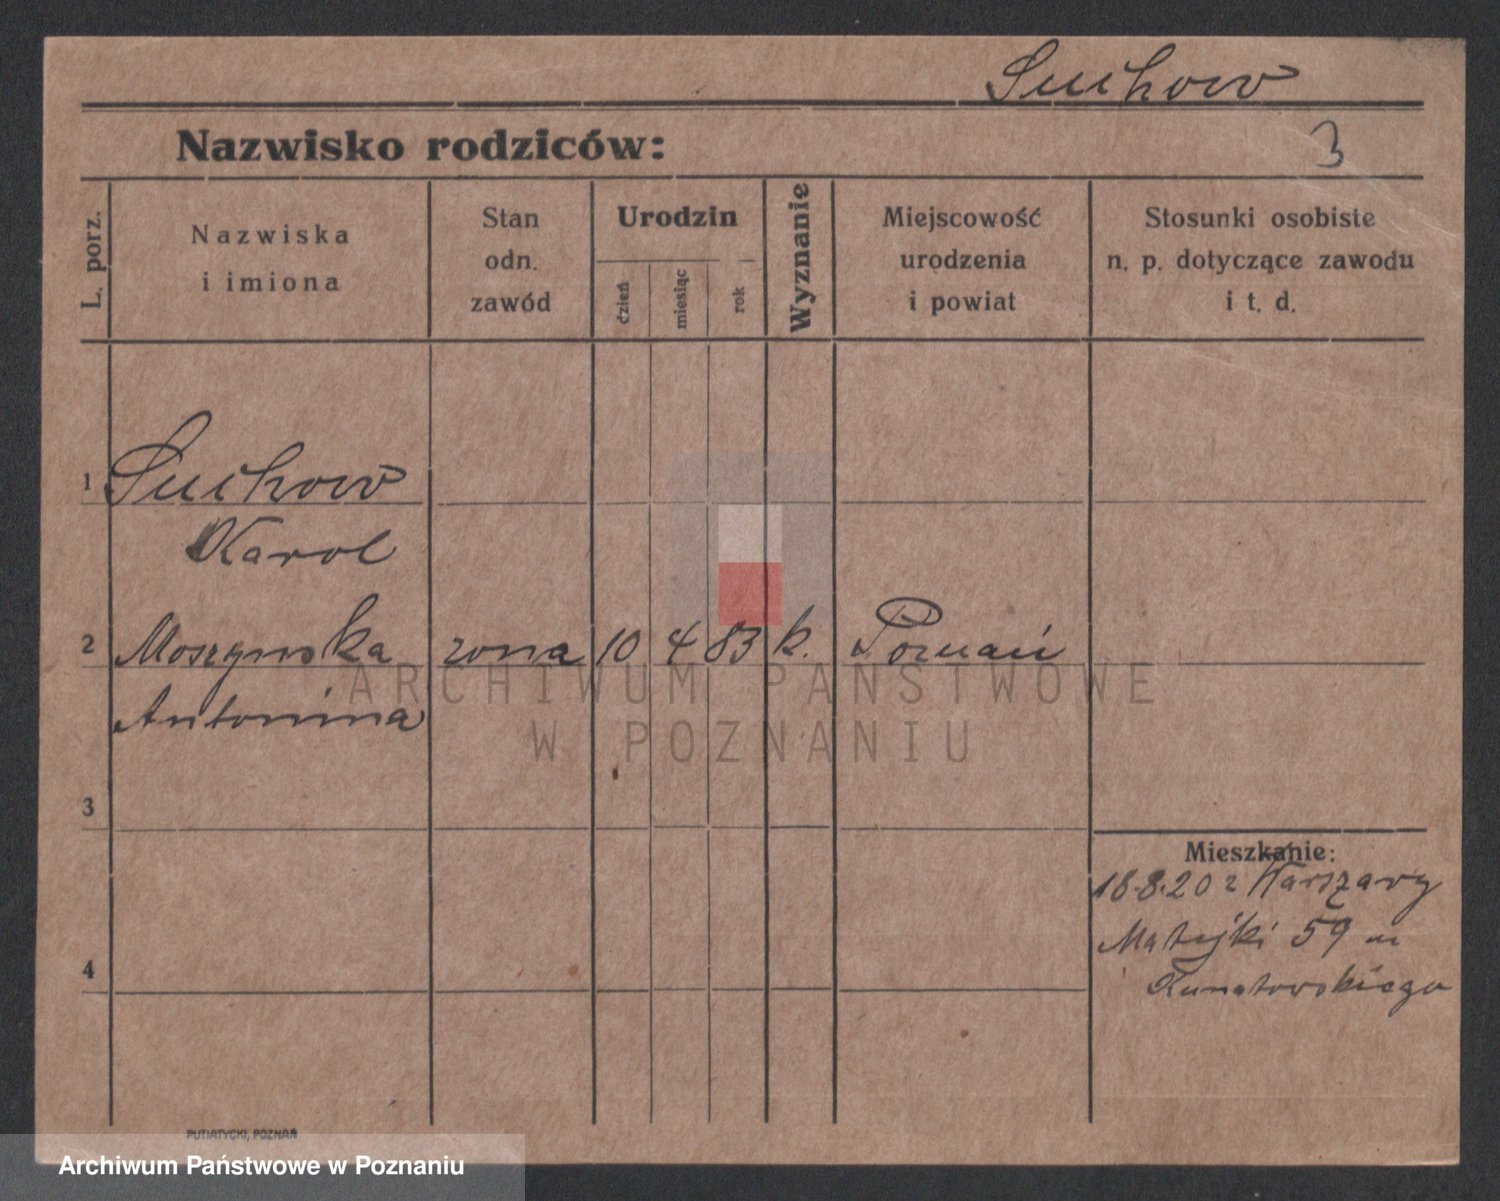 Suchow
Nazwisko rodziców:
3
L. porz.
Nazwiska
i imiona
Stan
odn.
zawód
Urodzin
dzień
miesiąc
rok
Wyznanie
Miejscowość
urodzenia
i powiat
Stosunki osobiste
n. p. dotyczące zawodu
i t. d.
1 Suchow
Karol
2 Moszynska zona 10 4 83 k. Poznań
Antonina
ARCHIWUM PAŃSTWOWE
W POZNANIU
3
Mieszkanie:
18.8.20 z Warszawy
Matejki 59 u
4
Kunatowskiego
PUTIATYCKI, POZNAŃ
Archiwum Państwowe w Poznaniu